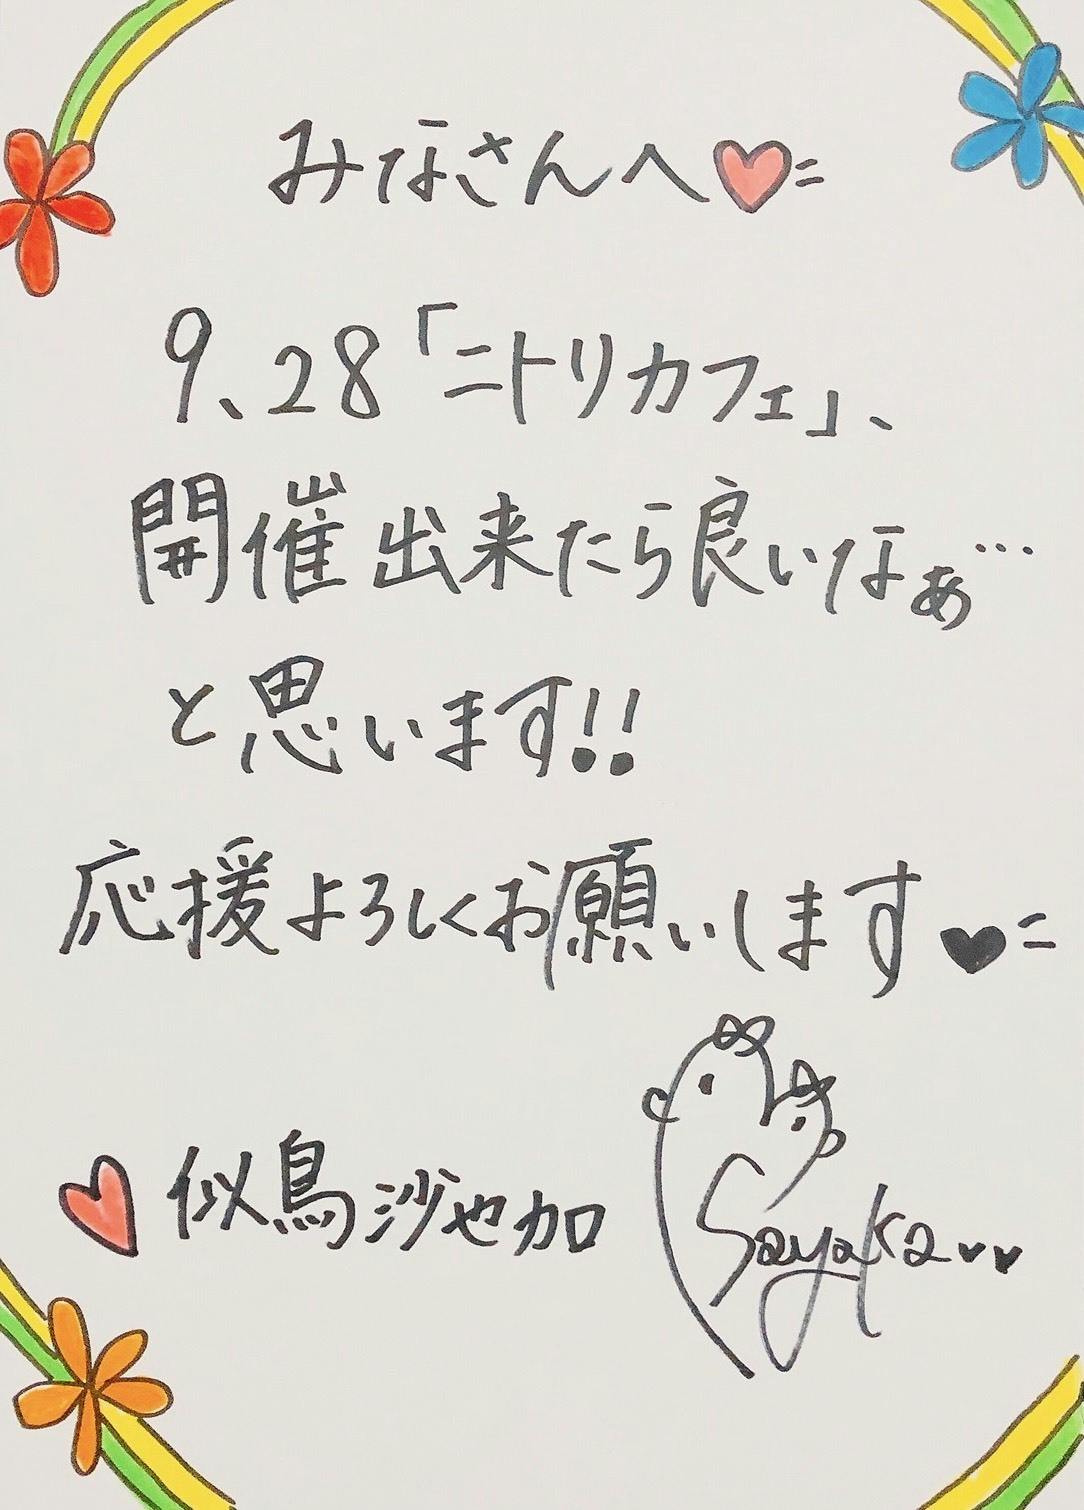 みなさんへ♥=
9、28「ニトリカフェ」、
開催出来たら良いなぁ…
と思います!!
応援よろしくお願いします♥=
♥似鳥沙也加
Sayaka♥♥